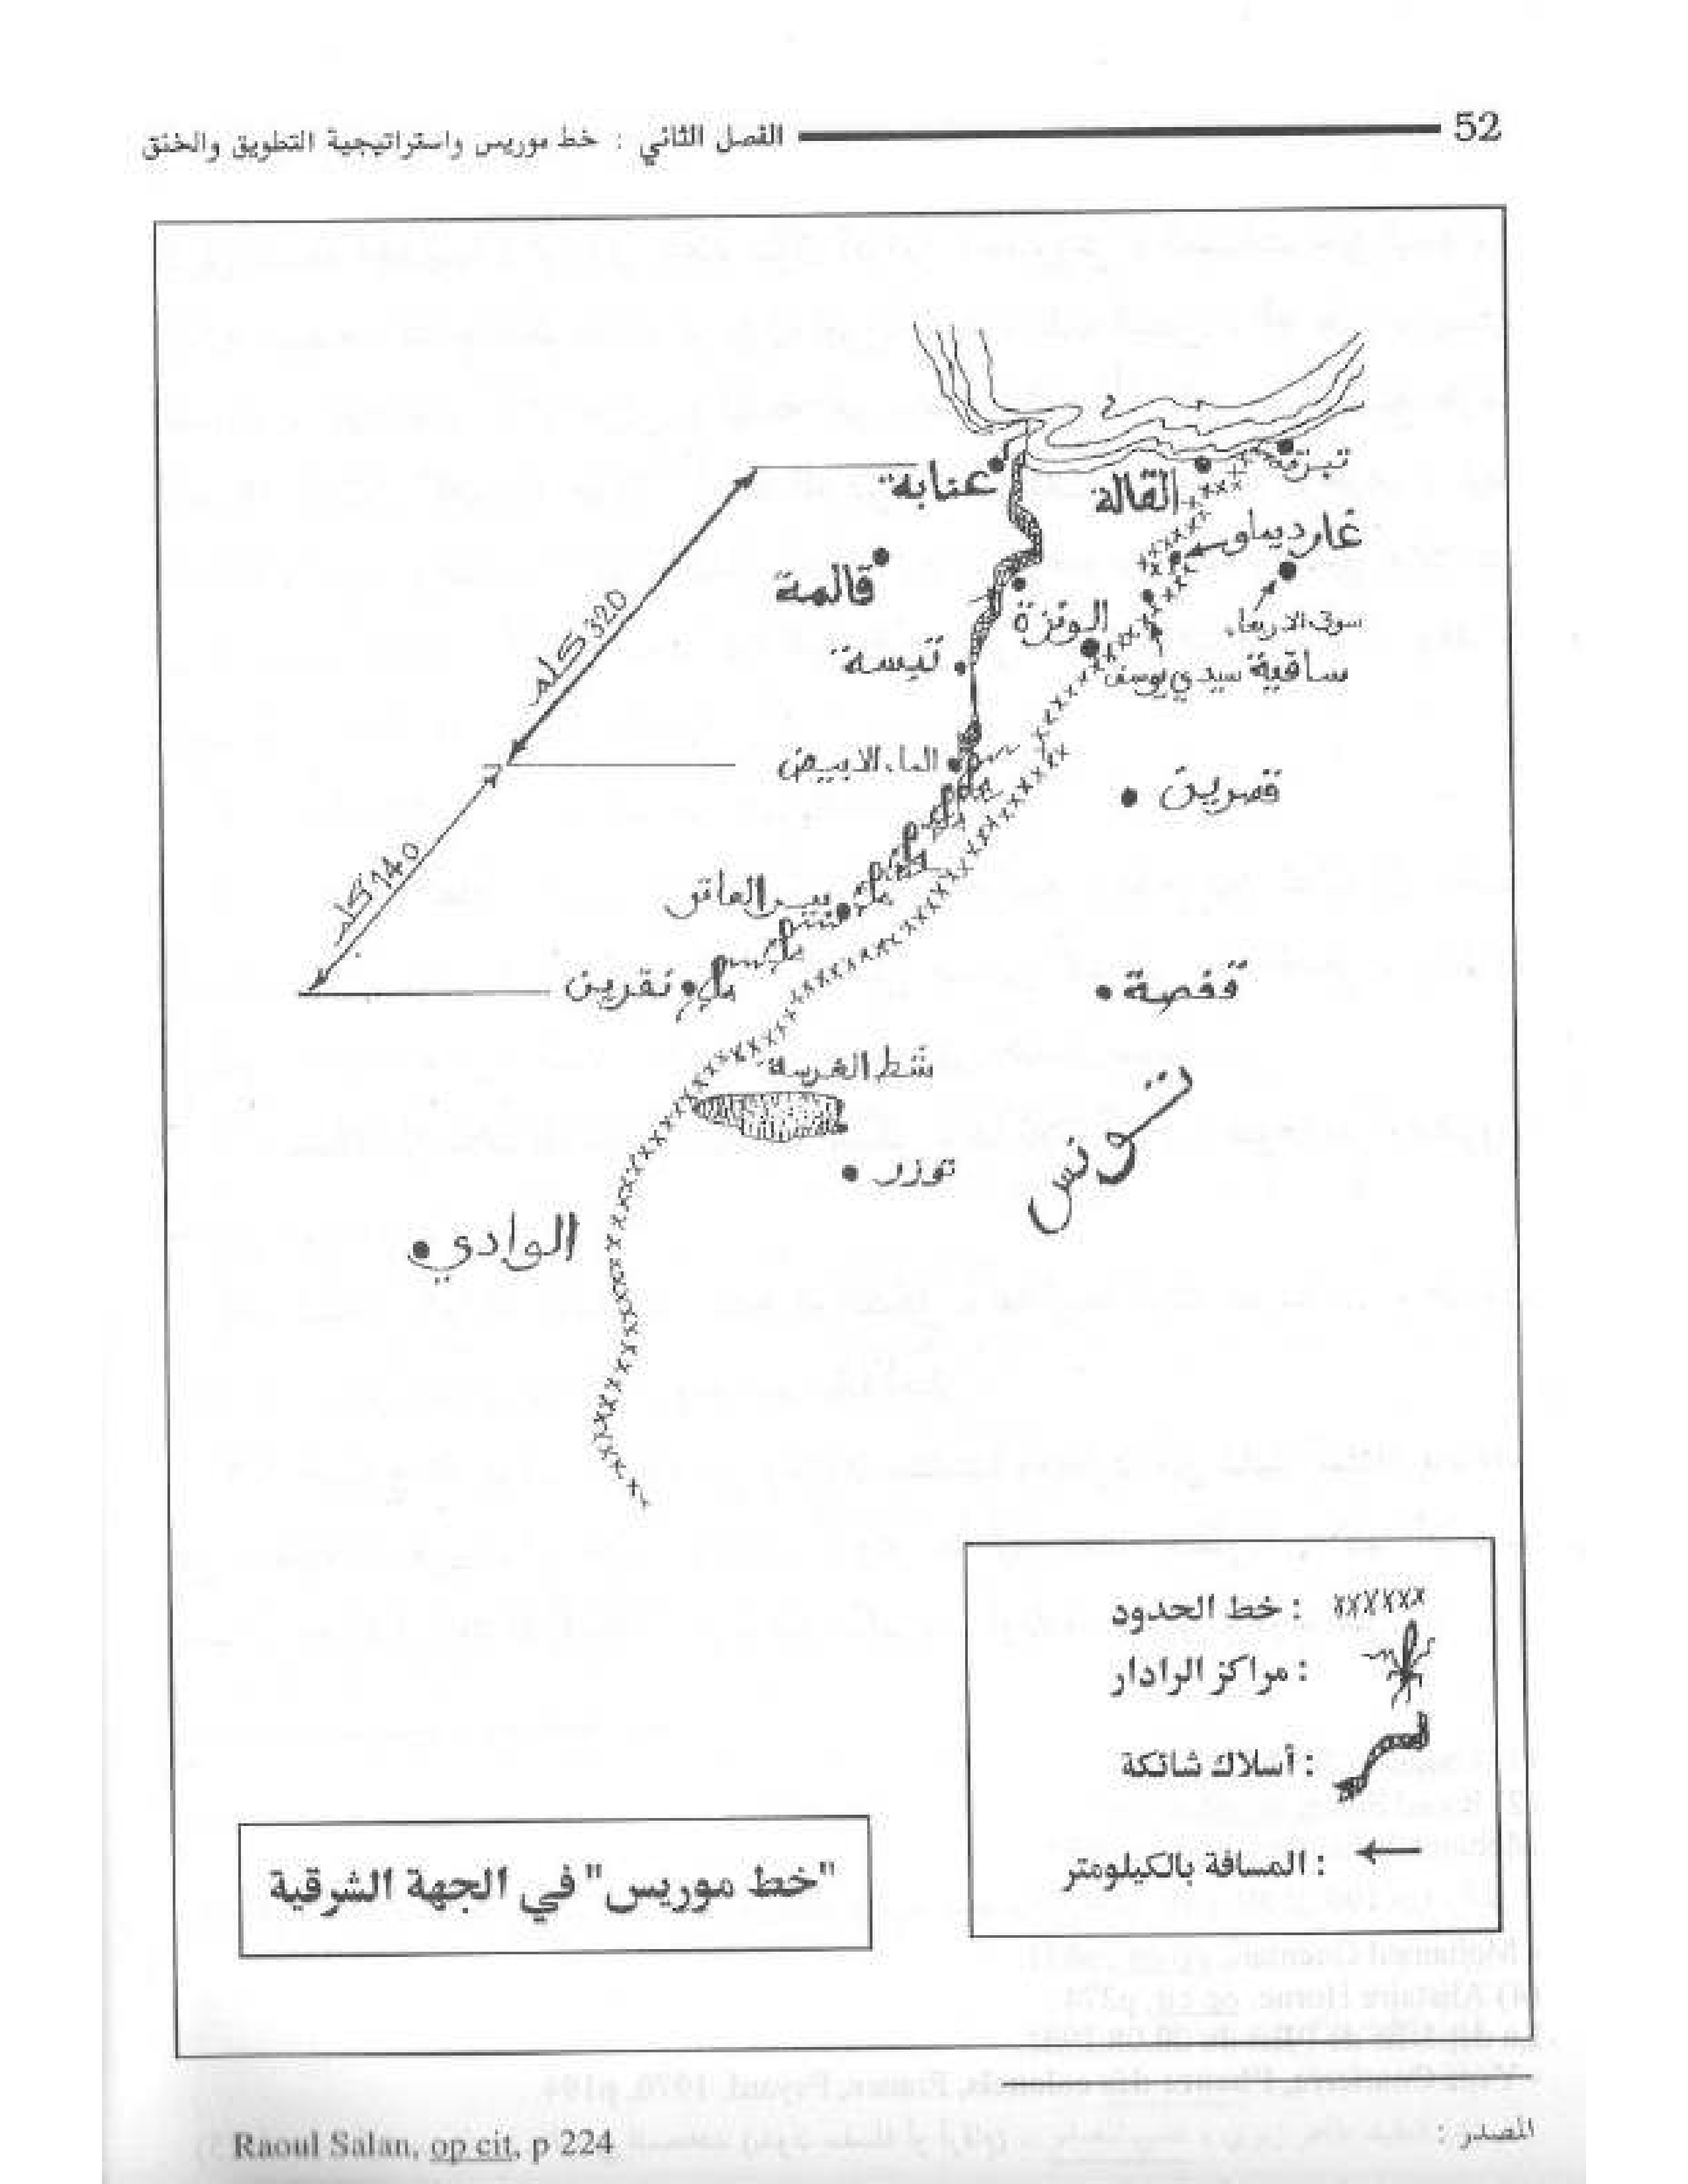 52
الفصل الثاني : خط موريس واستراتيجية التطويق والخنق
عنابة
القالة
غارديماو
قالمة
320 كلم
الونزة
سوق الاربعاء
تبسة
ساقية سيدي يوسف
الماء الابيض
قصرين
140 كلم
بير العاتر
نقرين
قفصة
شط الغرسة
تونس
توزر
الوادي
xxxxxx : خط الحدود
: مراكز الرادار
: أسلاك شائكة
: المسافة بالكيلومتر
"خط موريس" في الجهة الشرقية
المصدر :
Raoul Salan, op cit, p 224